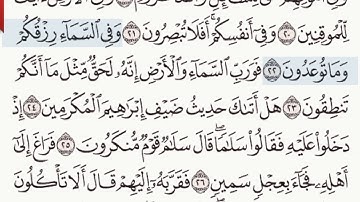 لِّلْمُوقِنِينَ ٢٠ وَفِىٓ أَنفُسِكُمْ ۚ أَفَلَا تُبْصِرُونَ ٢١ وَفِى ٱلسَّمَآءِ رِزْقُكُمْ
وَمَا تُوعَدُونَ ٢٢ فَوَرَبِّ ٱلسَّمَآءِ وَٱلْأَرْضِ إِنَّهُۥ لَحَقٌّ مِّثْلَ مَآ أَنَّكُمْ
تَنطِقُونَ ٢٣ هَلْ أَتَىٰكَ حَدِيثُ ضَيْفِ إِبْرَٰهِيمَ ٱلْمُكْرَمِينَ ٢٤ إِذْ
دَخَلُوا۟ عَلَيْهِ فَقَالُوا۟ سَلَـٰمًا ۖ قَالَ سَلَـٰمٌ قَوْمٌ مُّنكَرُونَ ٢٥ فَرَاغَ إِلَىٰٓ
أَهْلِهِۦ فَجَآءَ بِعِجْلٍ سَمِينٍ ٢٦ فَقَرَّبَهُۥٓ إِلَيْهِمْ قَالَ أَلَا تَأْكُلُونَ